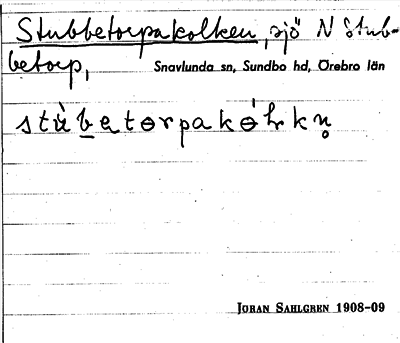 Stubbetorpakolken, sjö N Stub-
betorp,
Snavlunda sn, Sundbo hd, Örebro län
stùbetɵrpakɵ́lkn̥
JÖRAN SAHLGREN 1908-09